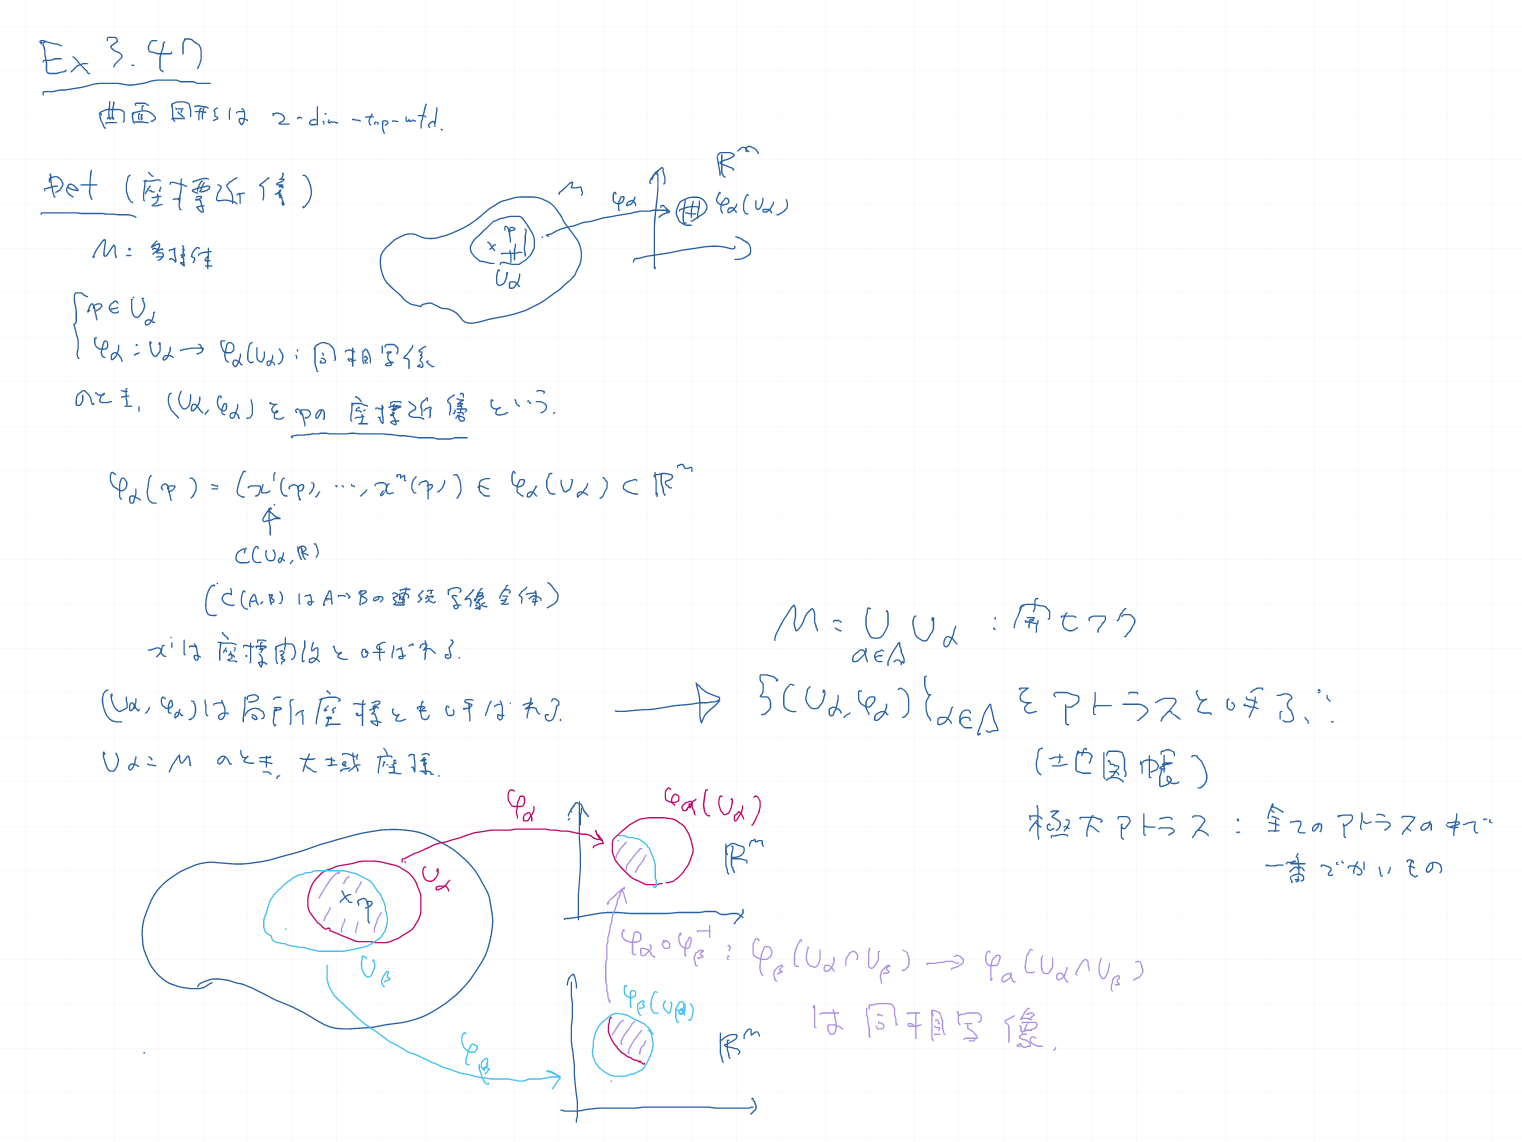 Ex 3.47
曲面図形は 2-dim-top-mfd.
Def (座標近傍)
M: 多様体
p∈Uα
φα: Uα→φα(Uα): 同相写像
のとき, (Uα, φα)をpの座標近傍という.
M
p
Uα
φα
ℝᵐ
φα(Uα)
φα(p) = (x¹(p), …, xᵐ(p)) ∈ φα(Uα) ⊂ ℝᵐ
↑
C(Uα, ℝ)
(C(A,B)はA→Bの連続写像全体)
xⁱは座標関数と呼ばれる.
(Uα, φα)は局所座標とも呼ばれる. →
Uα=M のとき, 大域座標.
M = ∪ Uα : 開セフク
α∈Λ
{(Uα, φα)}α∈Λ をアトラスと呼ぶ.
(地図帳)
極大アトラス: 全てのアトラスの中で
一番でかいもの
φα
φα(Uα)
ℝᵐ
Uα
xp
Uβ
φα∘φβ⁻¹: φβ(Uα∩Uβ) → φα(Uα∩Uβ)
は同相写像.
φβ(Uβ)
ℝᵐ
φβ